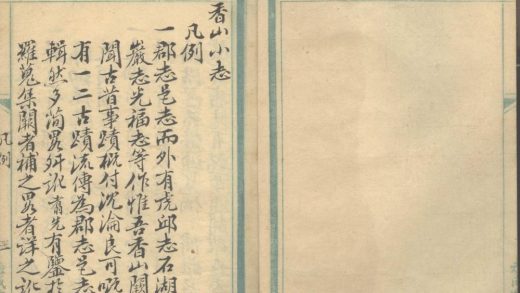 香山小志
凡例
一郡志邑志而外有虎邱志石湖
巖志光福志等作惟吾香山闕
聞古昔事蹟概付沈淪良可嘅
有一二古蹟流傳為郡志邑志
輯然多簡畧舛訛育先有鑒於
羅蒐集闕者補之畧者詳之訛
凡例